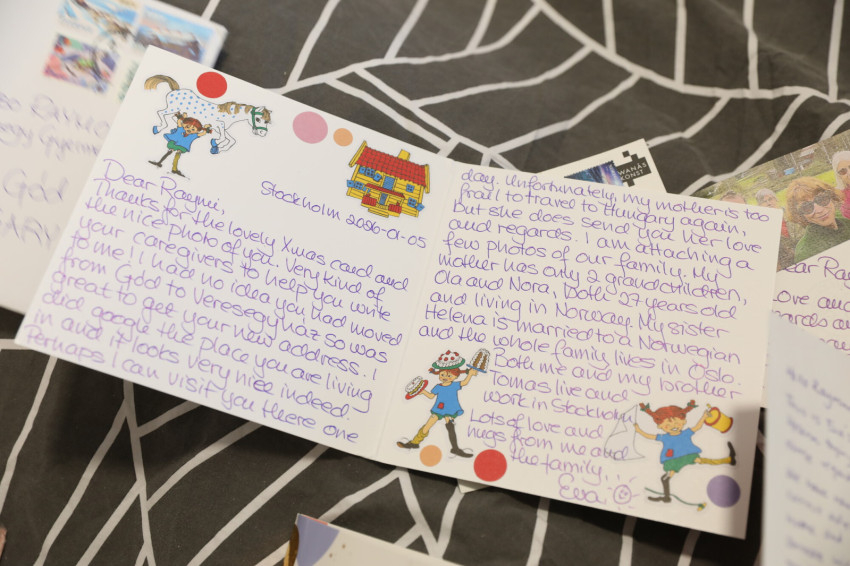 Dear Raymi,
Stockholm 2026-01-05
Thanks for the lovely Xmas card and
the nice photo of you. Very kind of
your caregivers to help you write
to me! I had no idea you had moved
from Göd to Veresegyház so was
great to get your new address. I
did google the place you are living
in and it looks very nice indeed.
Perhaps I can visit you there one
day. Unfortunately, my mother is too
frail to travel to Hungary again,
but she does send you her love
and regards. I am attaching a
few photos of our family. My
mother has only 2 grandchildren,
Ola and Nora, both 27 years old
and living in Norway. My sister
Helena is married to a Norwegian
and the whole family lives in Oslo.
Both me and my brother
Tomas live and
work in Stockholm.
Lots of love and
hugs from me and
the family,
Ewa
WANÅS
KONST
Göd
Love and